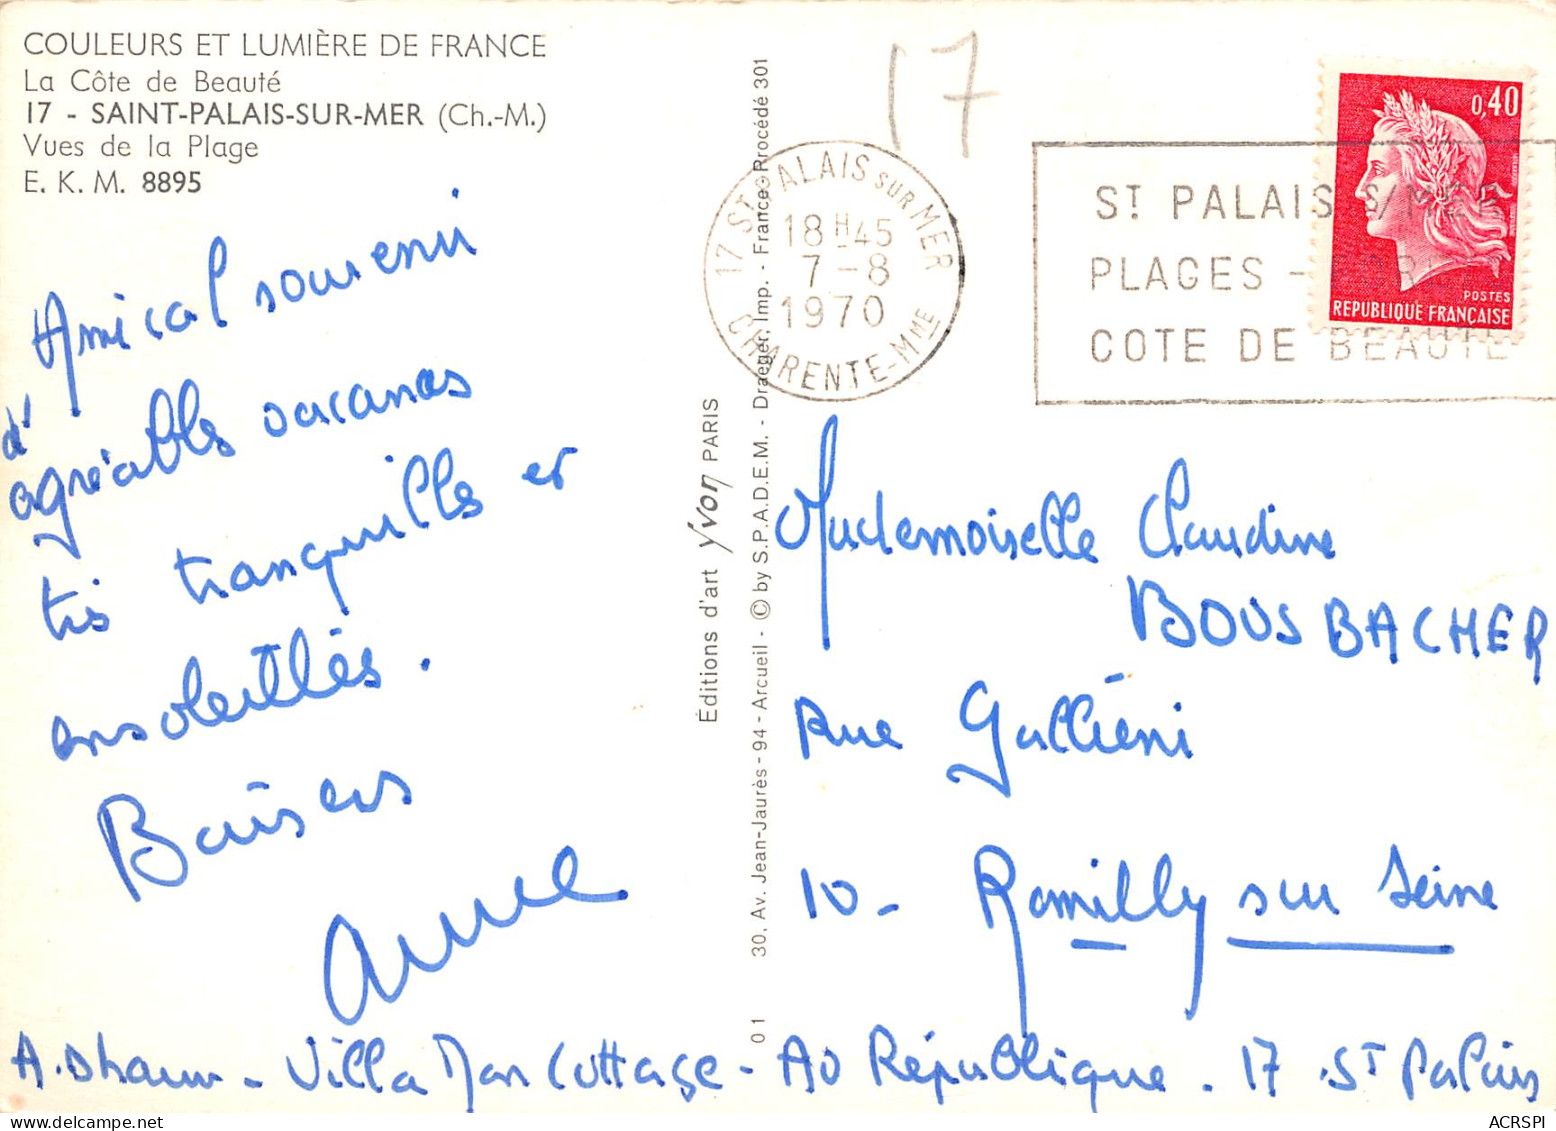 COULEURS ET LUMIÈRE DE FRANCE
La Côte de Beauté
17 - SAINT-PALAIS-SUR-MER (Ch.-M.)
Vues de la Plage
E. K. M. 8895
Amical souvenir
d'
agréables vacances
très tranquilles et
ensoleillés.
Baisers
Anne
A. - Villa Mon Cottage - Av République - 17 St Palais
Éditions d'art Yvon PARIS
0 1 30, Av. Jean-Jaurès - 94 - Arcueil - © by S.P.A.D.E.M. - Draeger, Imp. - France - Procédé 301
17
17 ST PALAIS SUR MER
18 H 45
7 - 8
1970
CHARENTE-MME
ST PALAIS S/MER
PLAGES -
COTE DE BEAUTE
0,40
POSTES
REPUBLIQUE FRANÇAISE
Mademoiselle Claudine
BOUSBACHER
Rue Galliéni
10 - Romilly sur Seine
ACRSPI